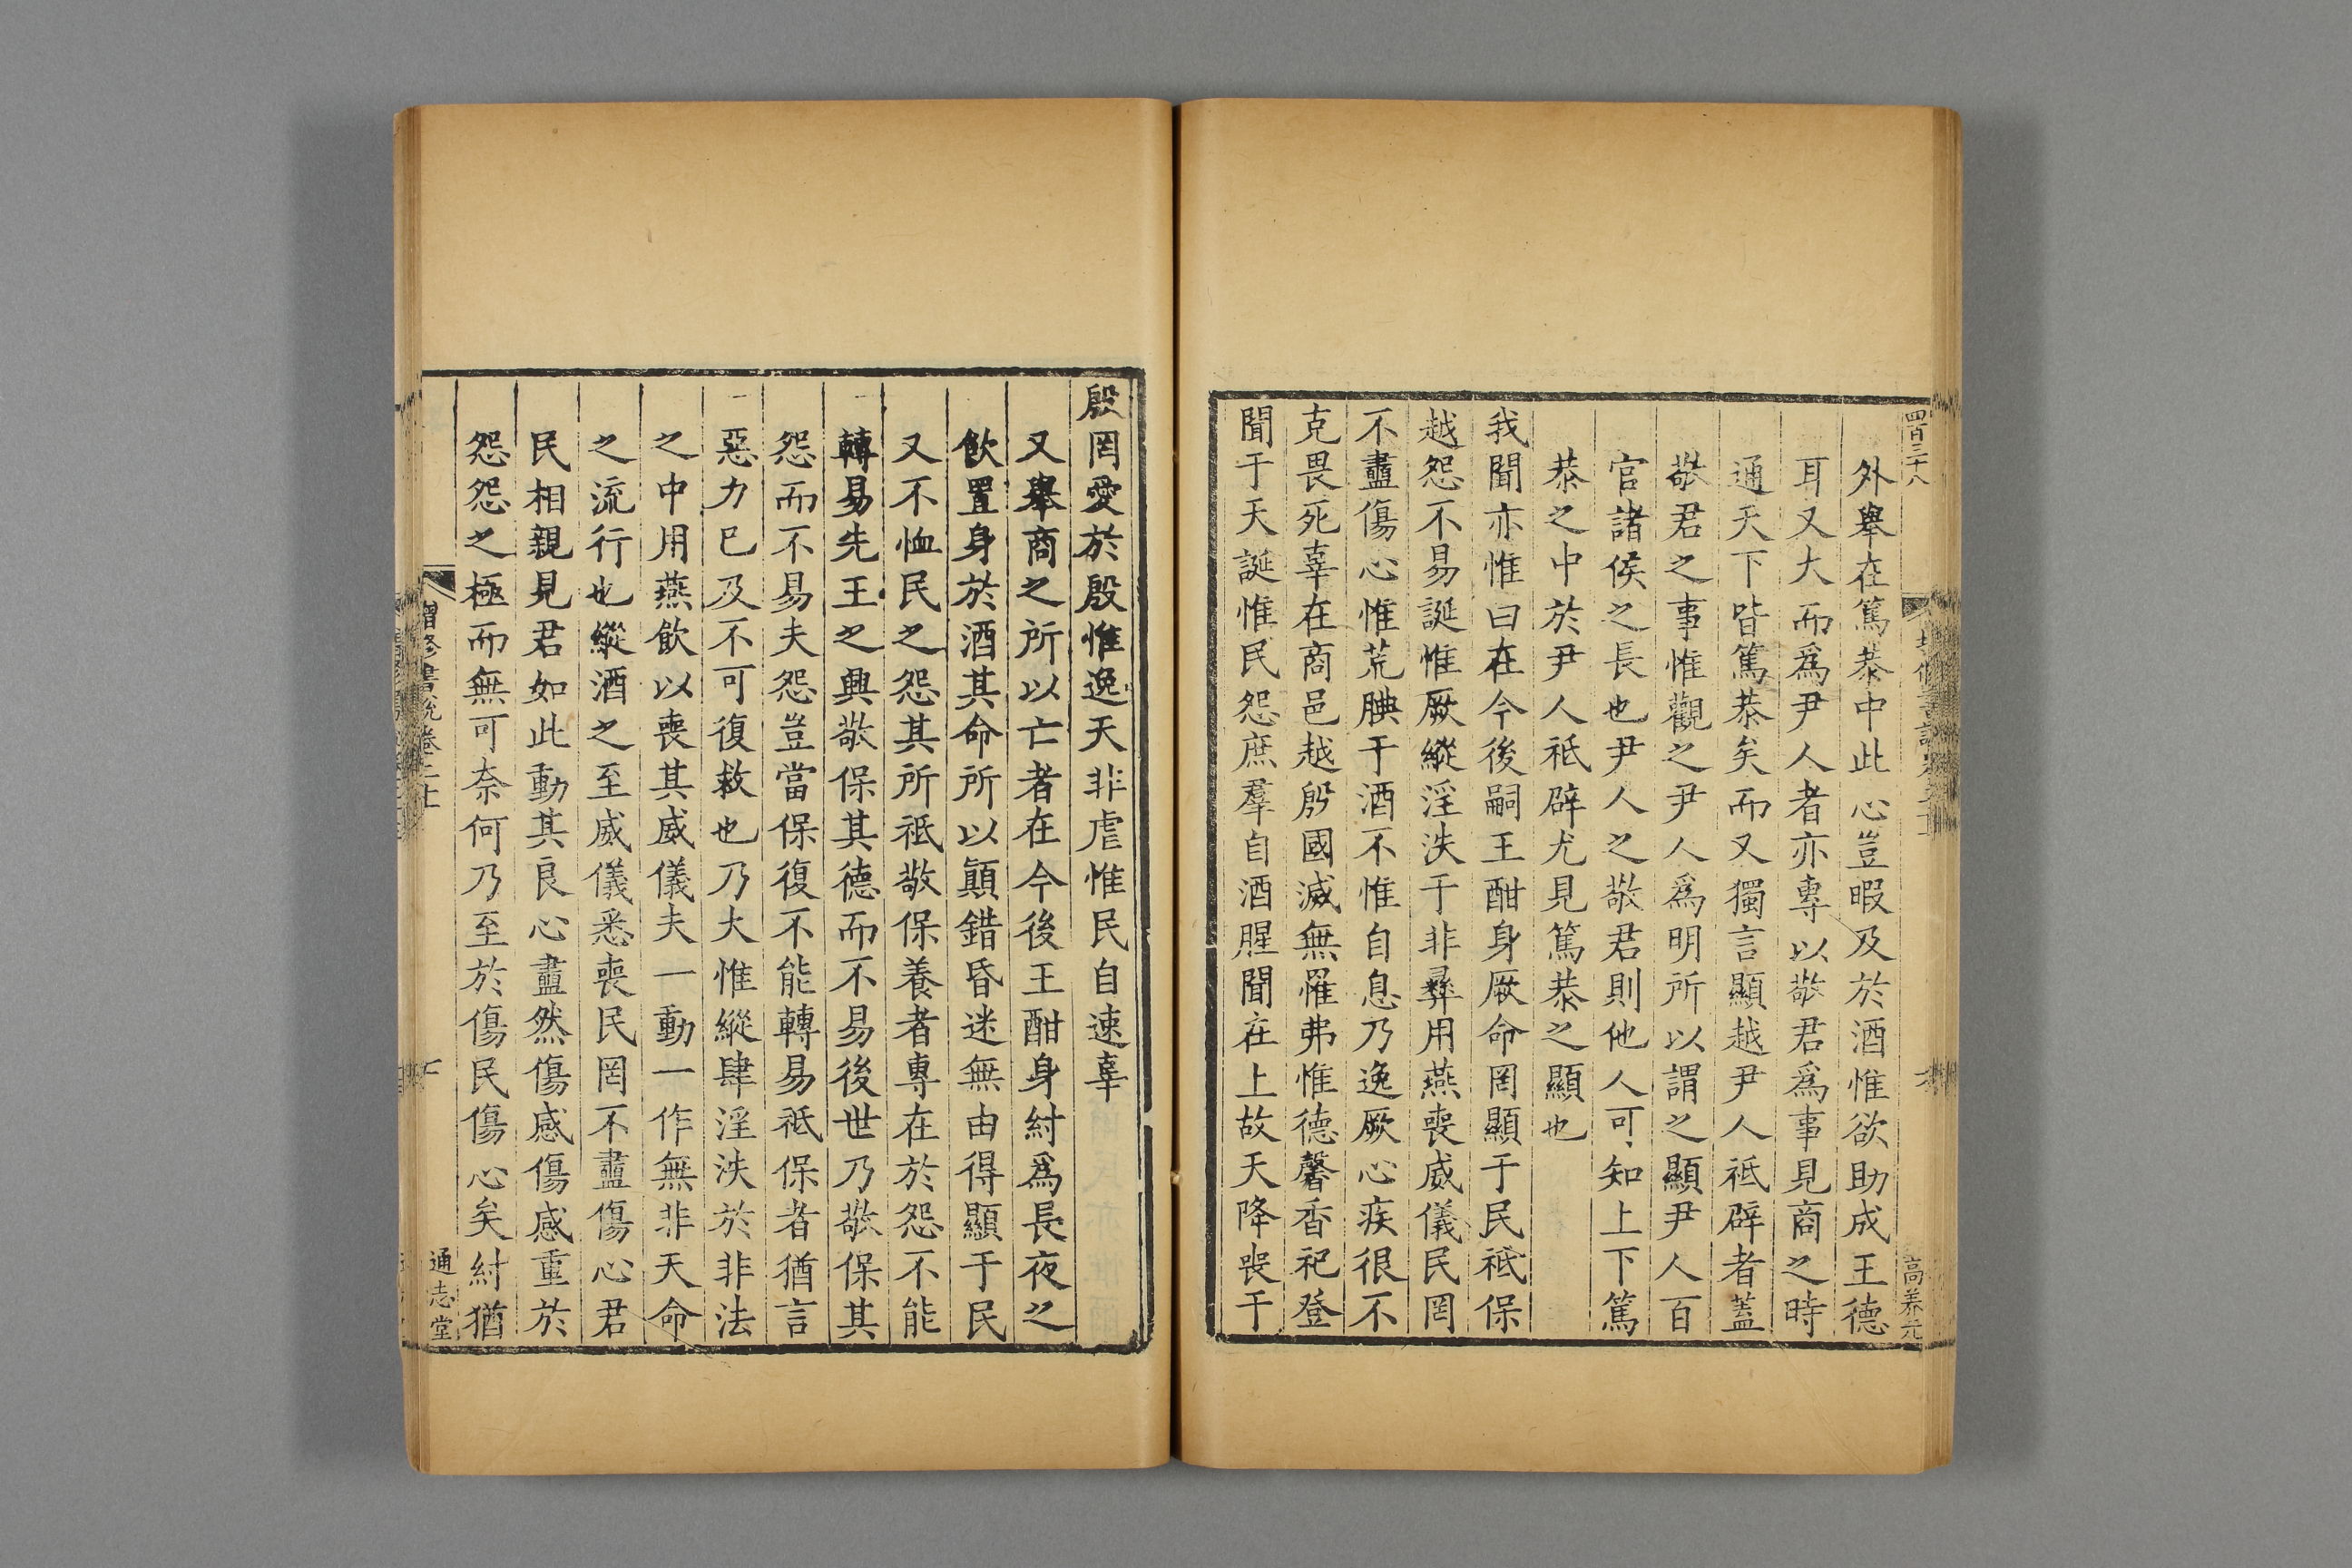 四百三十八
高養元
外舉在篤恭中此心豈暇及於酒惟欲助成王德
耳又大而爲尹人者亦專以敬君爲事見商之時
通天下皆篤恭矣而又獨言顯越尹人祗辟者蓋
敬君之事惟觀之尹人爲明所以謂之顯尹人百
官諸侯之長也尹人之敬君則他人可知上下篤
恭之中於尹人祗辟尤見篤恭之顯也
我聞亦惟曰在今後嗣王酣身厥命罔顯于民祗保
越怨不易誕惟厥縱淫泆于非彝用燕喪威儀民罔
不衋傷心惟荒腆于酒不惟自息乃逸厥心疾很不
克畏死辜在商邑越殷國滅無罹弗惟德馨香祀登
聞于天誕惟民怨庶羣自酒腥聞在上故天降喪于
殷罔愛於殷惟逸天非虐惟民自速辜
又舉商之所以亡者在今後王酣身紂爲長夜之
飲置身於酒其命所以顚錯昏迷無由得顯于民
又不恤民之怨其所祗敬保養者專在於怨不能
轉易先王之興敬保其德而不易後世乃敬保其
怨而不易夫怨豈當保復不能轉易祗保者猶言
惡力已及不可復救也乃大惟縱肆淫泆於非法
之中用燕飲以喪其威儀夫一動一作無非天命
之流行也縱酒之至威儀悉喪民罔不衋傷心君
民相親見君如此動其良心衋然傷感傷感重於
怨怨之極而無可奈何乃至於傷民傷心矣紂猶
增修書說卷二十
通志堂